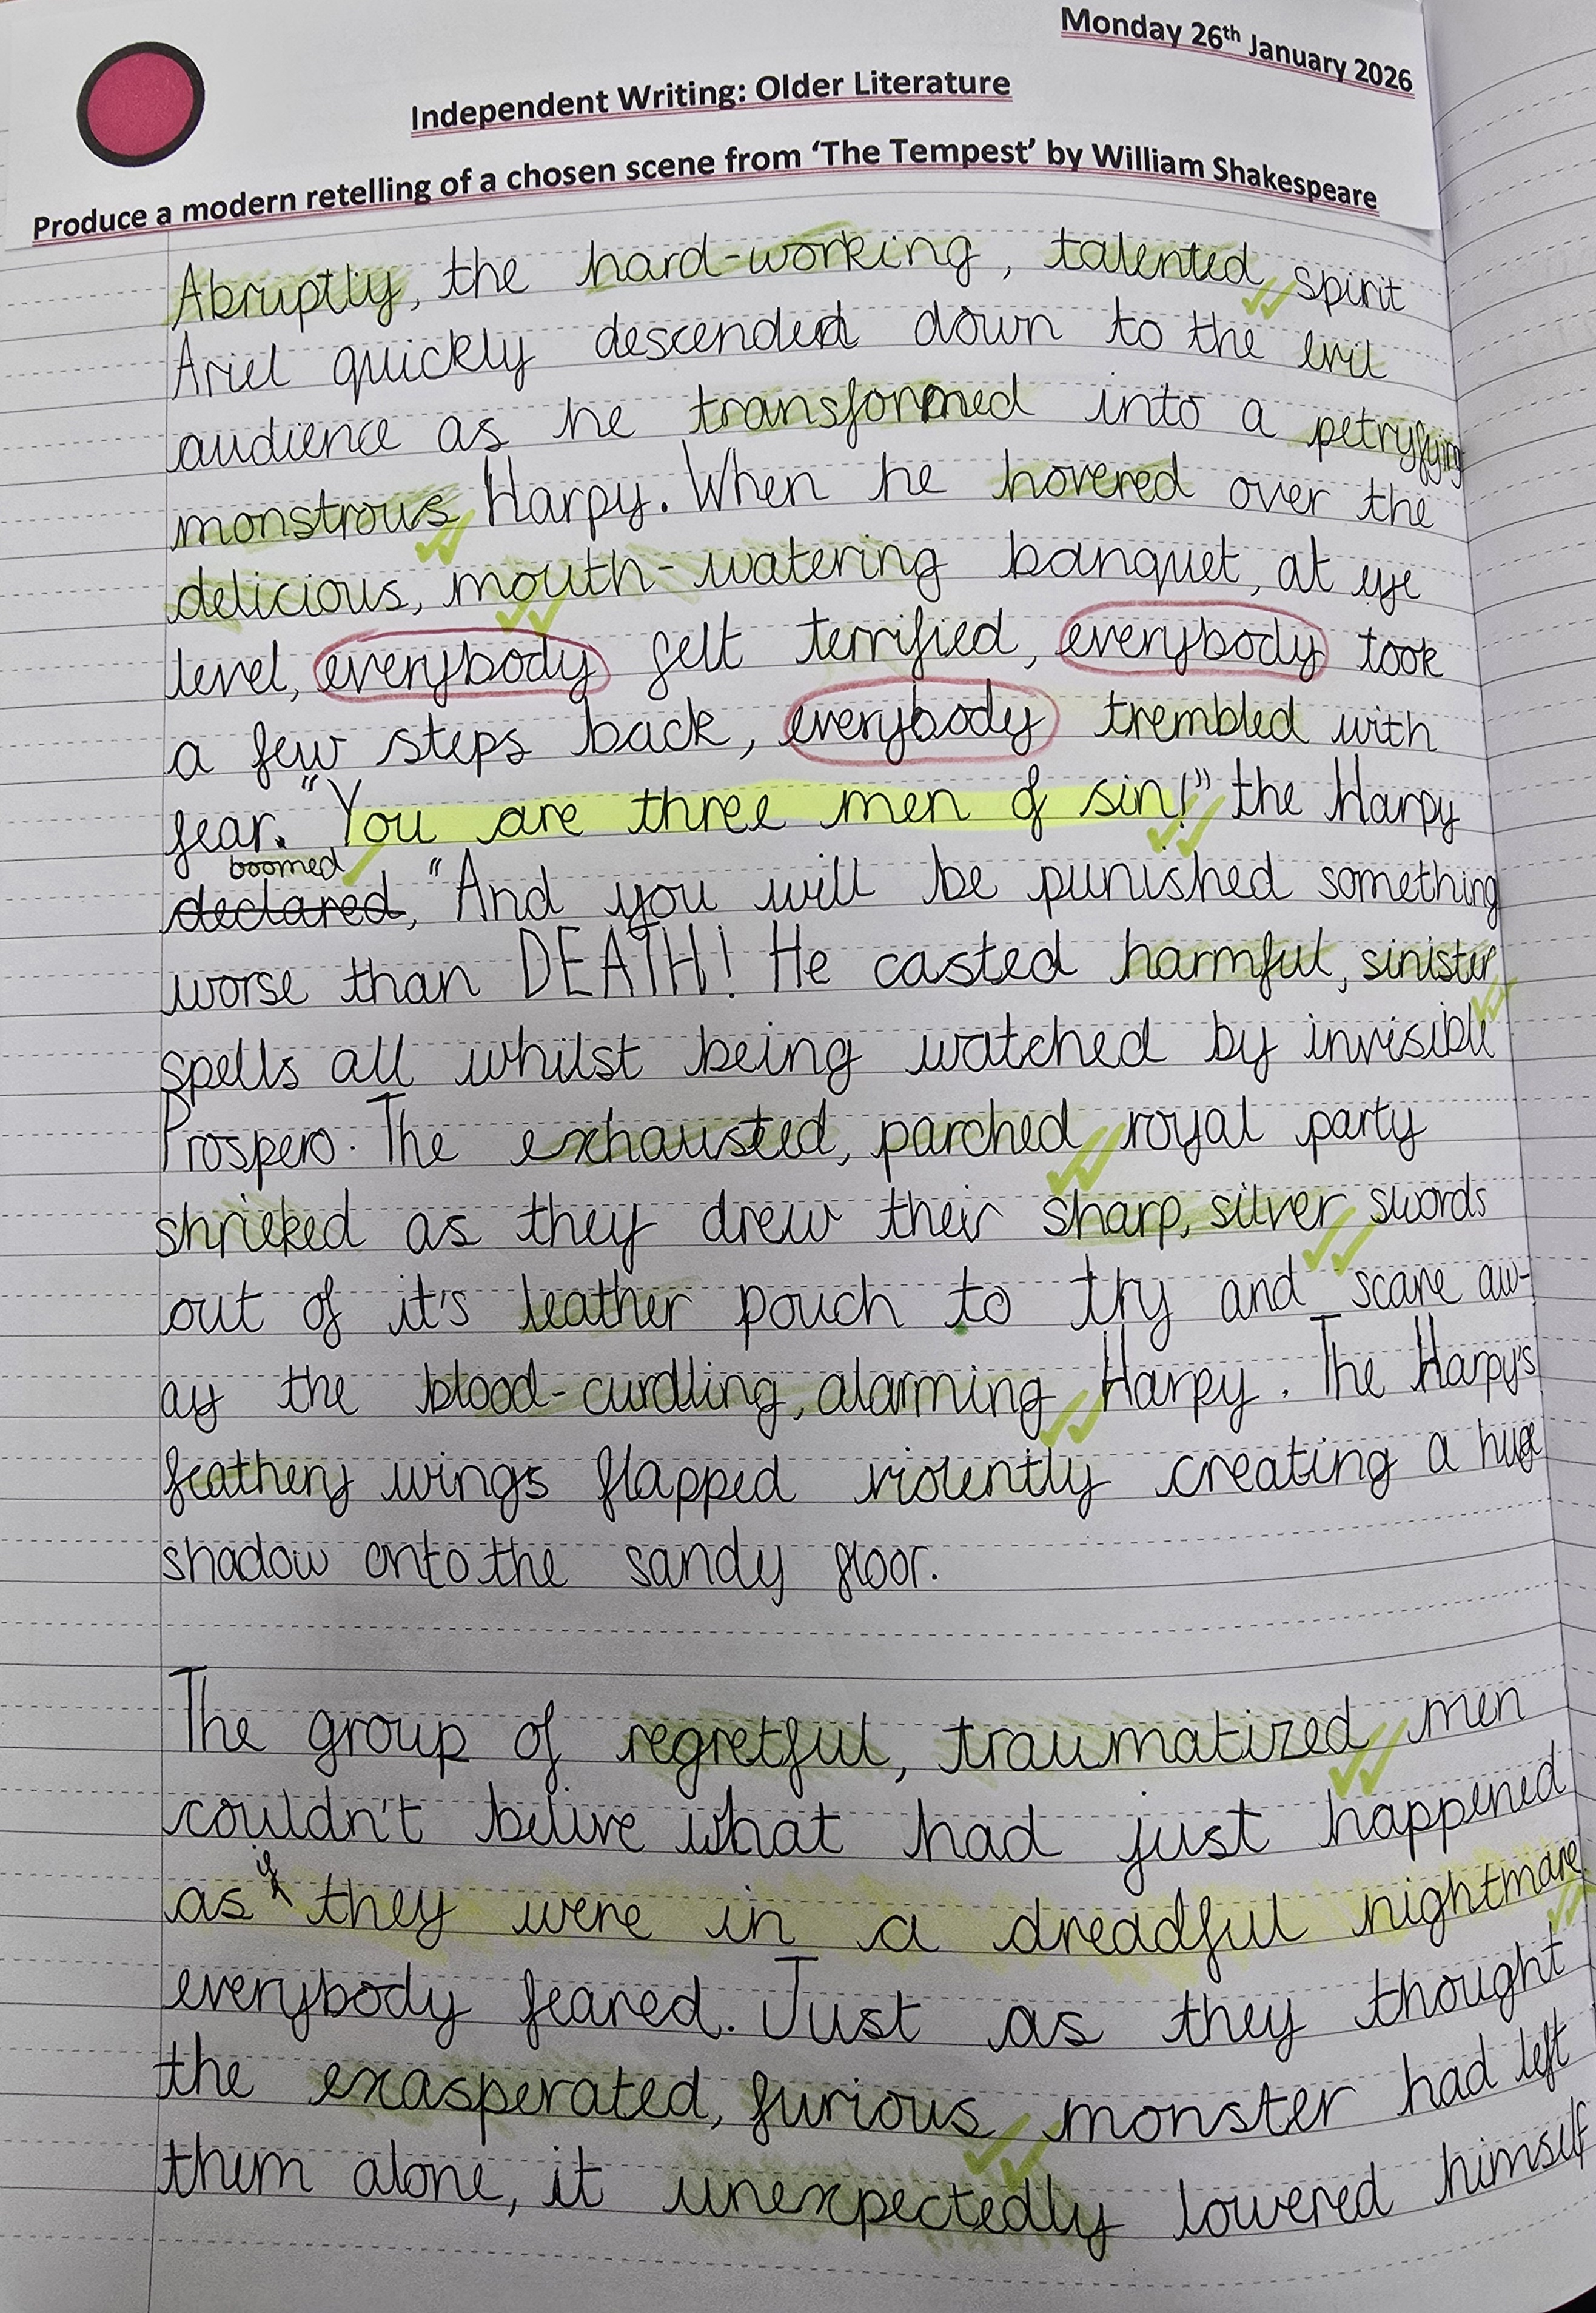 Monday 26th January 2026
Independent Writing: Older Literature
Produce a modern retelling of a chosen scene from ‘The Tempest’ by William Shakespeare
Abruptly, the hard-working, talented spirit
Ariel quickly descended down to the evil
audience as he transformed into a petryfying
monstrous Harpy. When he hovered over the
delicious, mouth-watering banquet, at eye
level, everybody felt terrified, everybody took
a few steps back, everybody trembled with
fear. "You are three men of sin!" the Harpy
boomed
declared, "And you will be punished something
worse than DEATH! He casted harmful, sinister
spells all whilst being watched by invisible
Prospero. The exhausted, parched royal party
shrieked as they drew their sharp, silver swords
out of it's leather pouch to try and scare aw-
ay the blood-curdling, alarming Harpy. The Harpy's
feathery wings flapped violently creating a huge
shadow onto the sandy floor.
The group of regretful, traumatized men
couldn't belive what had just happened
as if they were in a dreadful nightmare
everybody feared. Just as they thought
the exasperated, furious monster had left
them alone, it unexpectedly lowered himself